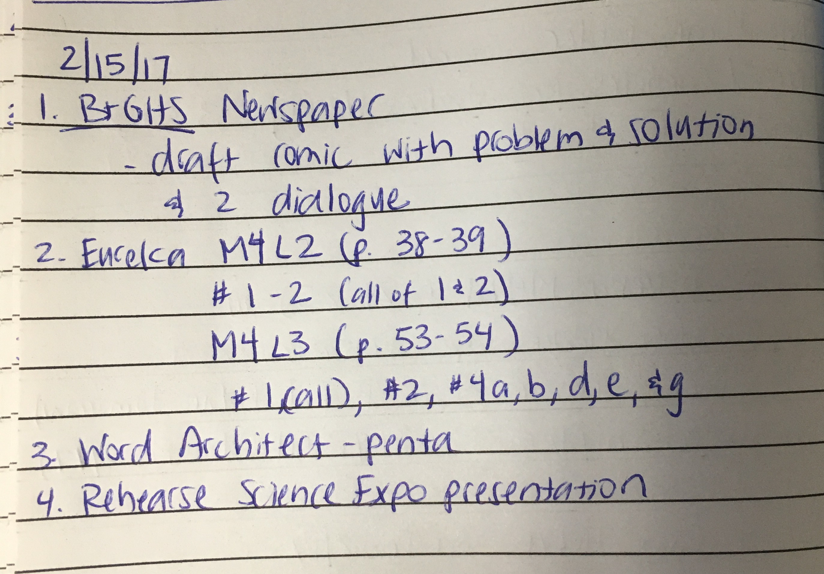 2/15/17
1. BrGHS Newspaper
- draft comic with problem & solution
& 2 dialogue
2. Eureka M4 L2 (p. 38-39)
# 1-2 (all of 1 & 2)
M4 L3 (p. 53-54)
# 1 (all), #2, #4a, b, d, e, & g
3. Word Architect - penta
4. Rehearse Science Expo presentation